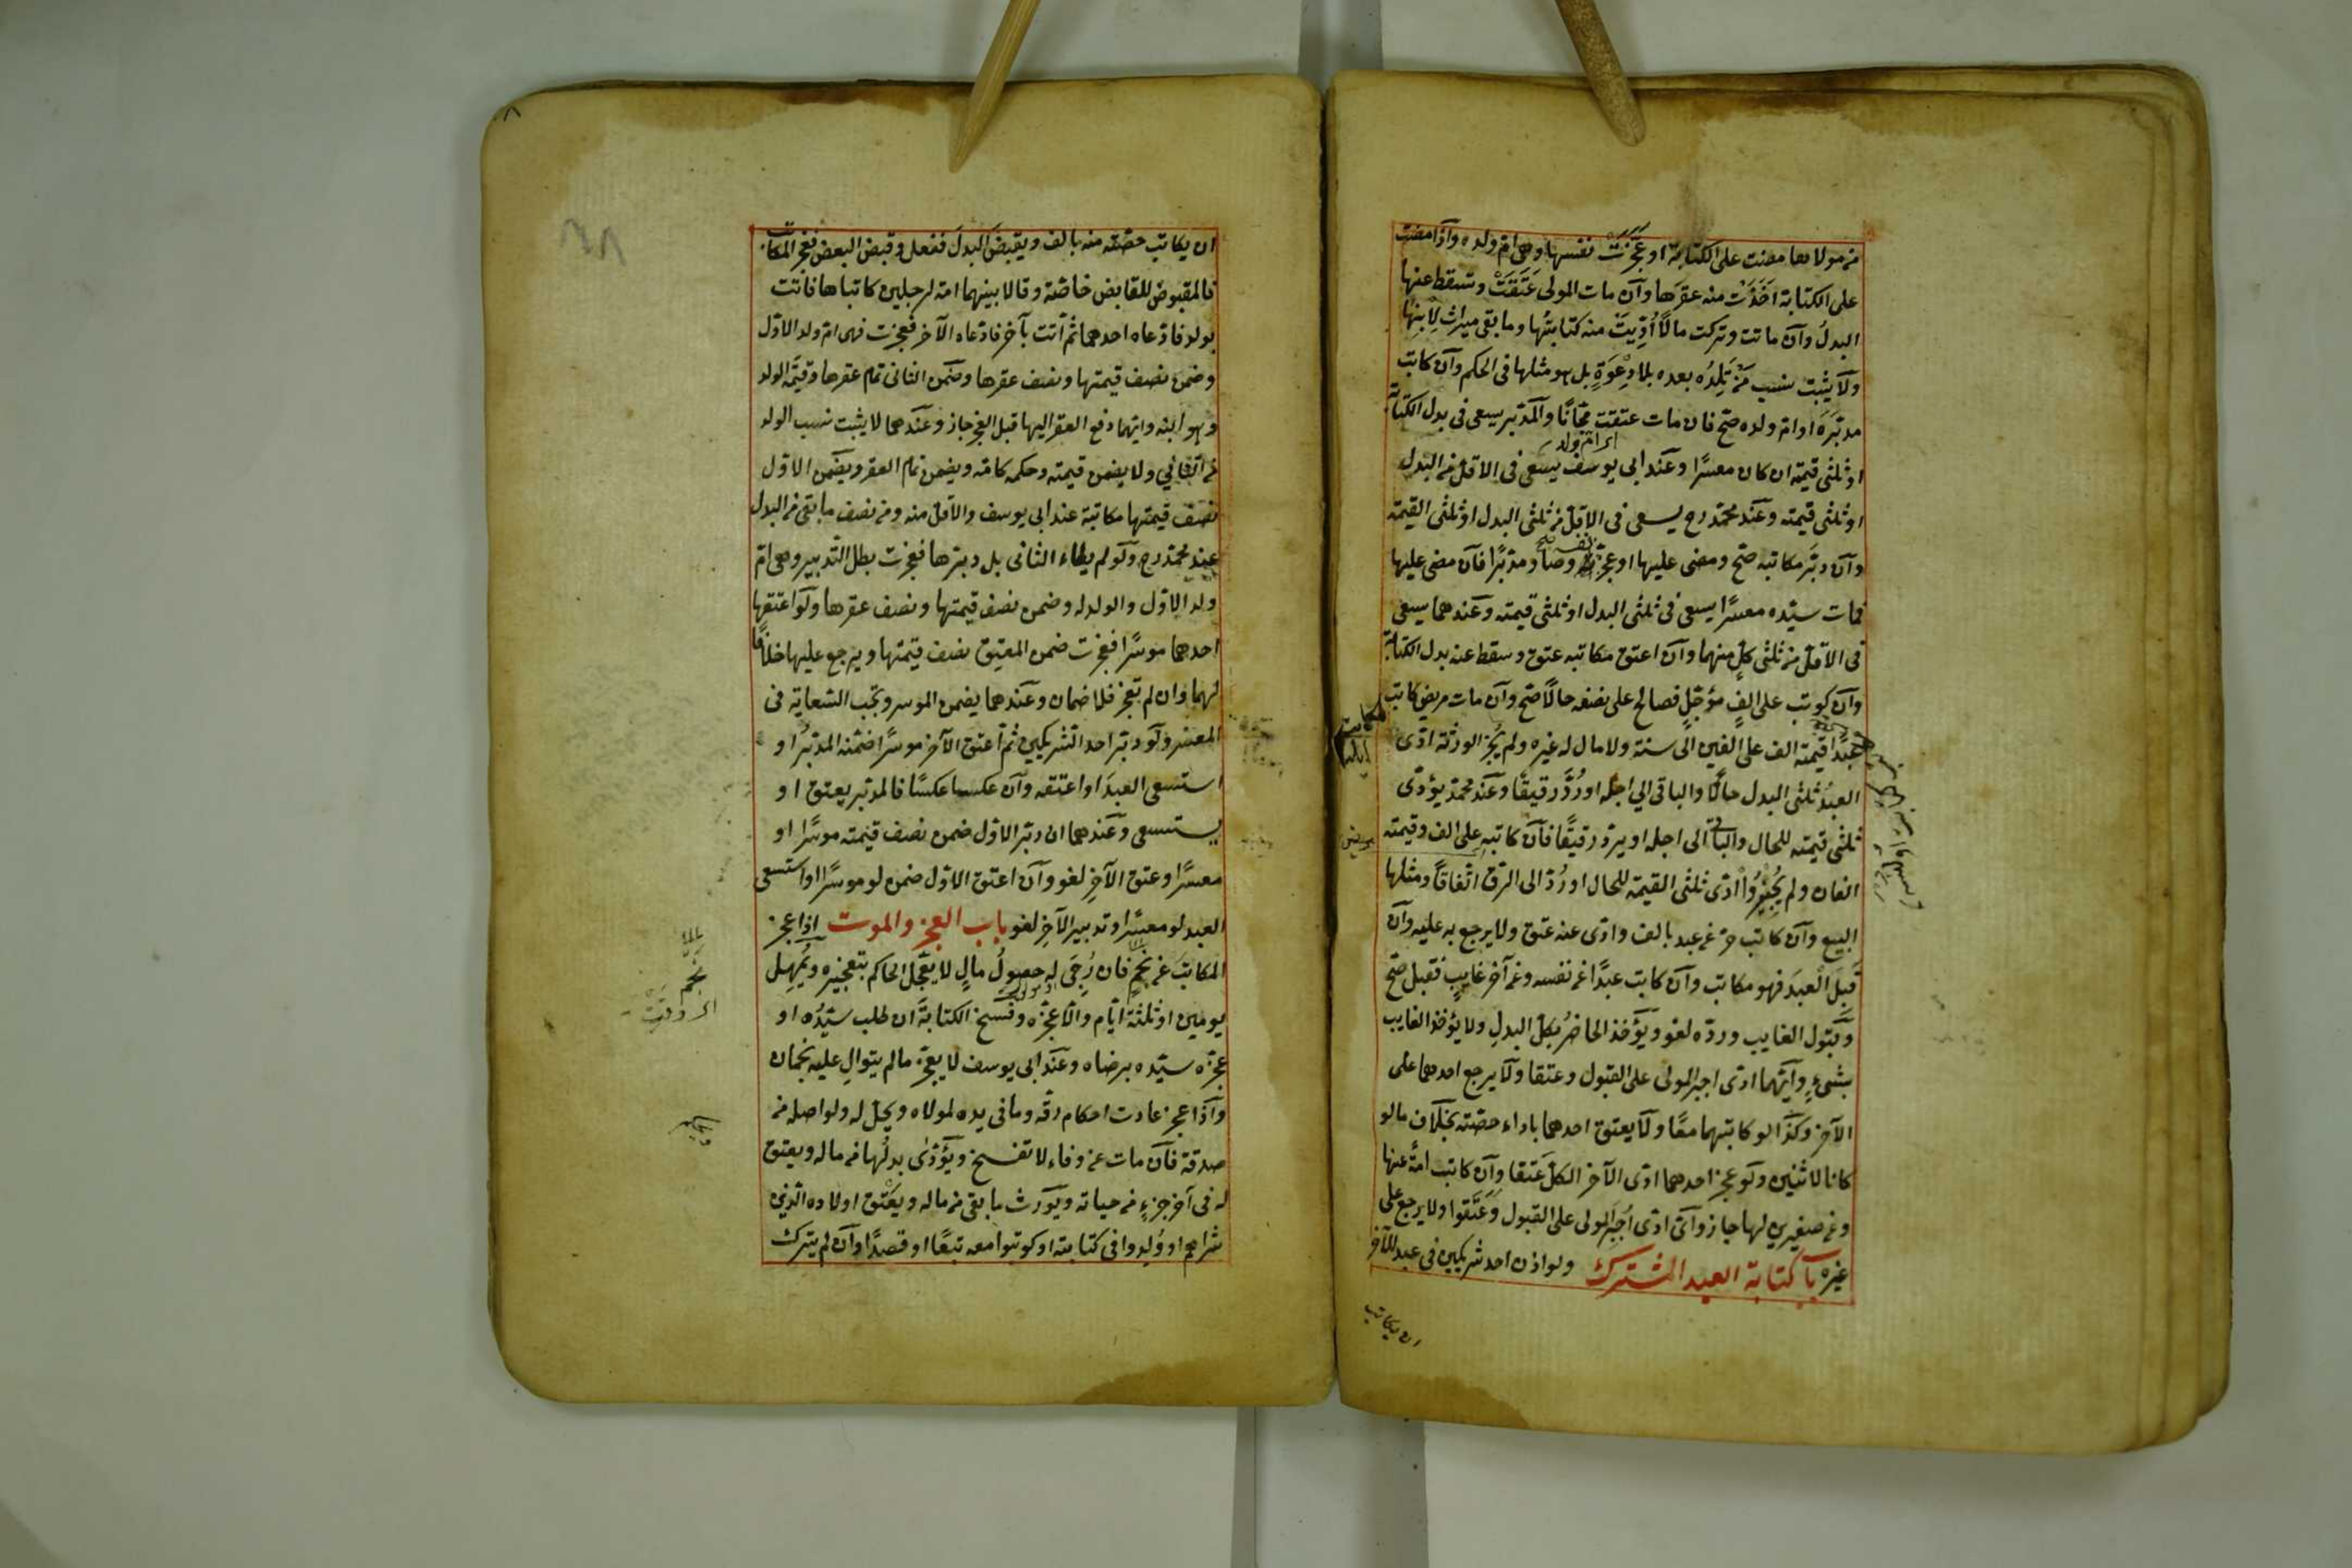 من مولاها مضت على الكتابة او عَجَزَتْ نفسها وهي ام ولده واذا مضت
على الكتابة اَخَذَتْ منه عقرَها وآن مات المولى عَتَقَتْ وسقط عنها
البدلُ وآن ماتت وتركت مالاً اُدِّيَتْ منه كتابتُها وما بقى ميراث لِابنِها
ولآ يثبت نسب مَنْ تَلِدُه بعده بلا دِعْوَةٍ بل هو مثلها في الحكم وآن كاتب
مدبّرَه او ام ولده صحّ فان مات عتقت مجّانًا والمدبّر يسعى في بدل الكتابة
او ثلثى قيمته ان كان معسرًا وعند ابي يوسف يسعى في الاقلّ من البدل
او ثلثى قيمته وعند محمّد رح يسعى في الاقلّ من ثلثى البدل او ثلثى القيمة
وآن دبّر مكاتبه صحّ ومضى عليها او عجّز نفسه وصار مدبّرًا فآن مضى عليها
فمات سيّده معسرًا يسعى في ثلثى البدل او ثلثى قيمته وعندهما يسعى
في الاقلّ من ثلثى كلٍّ منهما وآن اعتق مكاتبه عتق وسقط عنه بدل الكتابة
وآن كوتب على الفٍ مؤجّلٍ فصالح على نصفه حالاً صحّ وآن مات مريض كاتب
عبدًا قيمته الف على الفين الى سنة ولا مال له غيره ولم يُجز الورثة ادّى
العبدُ ثلثى البدل حالًّا والباقى الي اجله او رُدَّ رقيقًا وعند محمّد يؤدّى
ثلثى قيمته للحال والباقى الى اجله او يردّ رقيقًا فآن كاتبه على الف وقيمته
الفان ولم يُجِيزُوا ادّى ثلثى القيمة للحال او رُدّ الى الرق اتّفاقاً ومثلها
البيع وآن كاتب حرّ عن عبد بالف وادّى عنه عتق ولا يرجع به عليه وآن
قَبِلَ العبدَ فهو مكاتب وآن كاتب عبدًا عن نفسه وعن آخر غايبٍ فقبل صحّ
وقبول الغايب وردّه لغو ويُؤخذ الحاضرُ بكلّ البدلِ ولا يؤخذ الغايب
بشىءٍ وآيّهما ادّى اجبر المولى على القبول وعتقا ولآ يرجع احدهما على
الآخر وكذا لو كاتبهما معًا ولآ يعتق احدهما باداء حصّته بخلاف ما لو
كانا لاثنين ولو عجز احدهما ادّى الآخر الكلّ عَتقا وآن كاتب امةً عنها
وعن صغيرين لها جاز وآىّ ادّى اُجْبِرَ المولى على القبول وَعَتَقوا ولا يرجع على
غيره باب كتابة العبد المشترك ولو اذن احد شريكين في عبد للآخر
ان يكاتب
ان يكاتب حصّته منه بالف ويقبضَ البدلَ ففعل وقبض البعض فعجز المكاتب
فالمقبوض للقابض خاصّة وقالا بينهما امة لرجلين كاتباها فاتت
بولد فادّعاه احدهما ثم أتت بآخر فادّعاه الآخر فعجزت فهى ام ولد الاوّل
وضمن نصف قيمتها ونصف عقرها وضمن الثانى تمام عقرها وقيمة الولد
وهو ابنه وايّهما دفع العقر اليها قبل العجز جاز وعندهما لا يثبت نسب الولد
من الثاني ولا يضمن قيمته وحكمه كامّه ويضمن تمام العقر ويضمن الاوّل
نصف قيمتها مكاتبة عند ابى يوسف والاقلّ منه ومن نصف ما بقى من البدل
عند محمّد رح ولو لم يطاء الثانى بل دبّرها فعجزت بطل التّدبير وهى امّ
ولد الاوّل والولد له وضمن نصف قيمتها ونصف عقرها ولو اعتقها
احدهما موسرًا فعجزت ضمن المعتِق نصف قيمتها ويرجع عليها خلافًا
لهما وان لم تعجز فلا ضمان وعندهما يضمن الموسر وتجب السّعاية فى
المعسر ولو دبّر احد الشريكين ثم اعتق الآخر موسرًا ضمّنه المدبّرُ او
استسعى العبدَ او اعتقه وآن عكسا عكسًا فالمدبّر يعتق او
يستسعى وعندهما ان دبّر الاوّل ضمن نصف قيمته موسرًا او
معسرًا وعتق الآخِر لغو وآن اعتق الاوّل ضمن لو موسرًا او استسعى
العبد لو معسرًا وتدبير الآخِر لغو باب العجز والموت اذا عجز
المكاتبَ عن نَجْمٍ فان رُجِىَ له حصولُ مالٍ لا يعجّل الحاكم بتعجيزه ويُمهل
يومين او ثلثة ايّام والّا عجّزه وفسخ الكتابةَ ان طلب سيّدُه او
عجّزه سيّده برضاه وعند ابى يوسف لا يعجّز ما لم يتوال عليه نجمان
وآذا عجز عادت احكام رقّه وما فى يده لمولاه ويحلّ له ولو اصله من
صدقة فآن مات عن وفاء لا تفسخ ويُؤدّى بدلُها من ماله ويعتق
له فى آخر جزءٍ من حياته ويُورث ما بقى من ماله ويعتق اولاده الّذين
شراهم او وُلِدوا فى كتابته او كوتبوا معه تبعًا او قصدًا وآن لم يترك
نجم